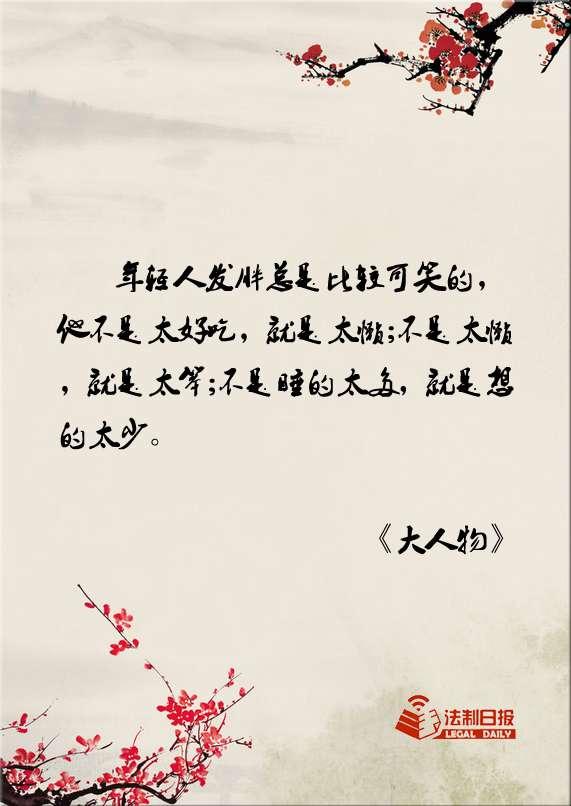 年轻人发胖总是比较可笑的，
他不是太好吃，就是太懒；不是太懒
，就是太笨；不是睡的太多，就是想
的太少。
《大人物》
法制日报
LEGAL DAILY